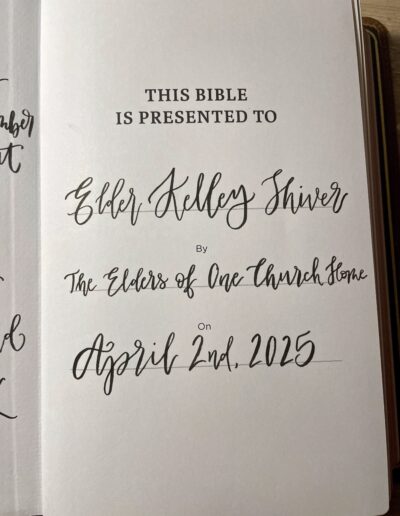 THIS BIBLE
IS PRESENTED TO
Elder Kelley Shiver
By
The Elders of One Church Home
On
April 2nd, 2025